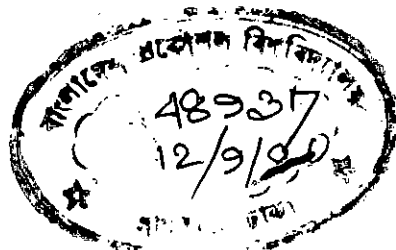 বাংলাদেশ প্রকৌশল বিশ্ববিদ্যালয়
48937
12/9/
ঢাকা